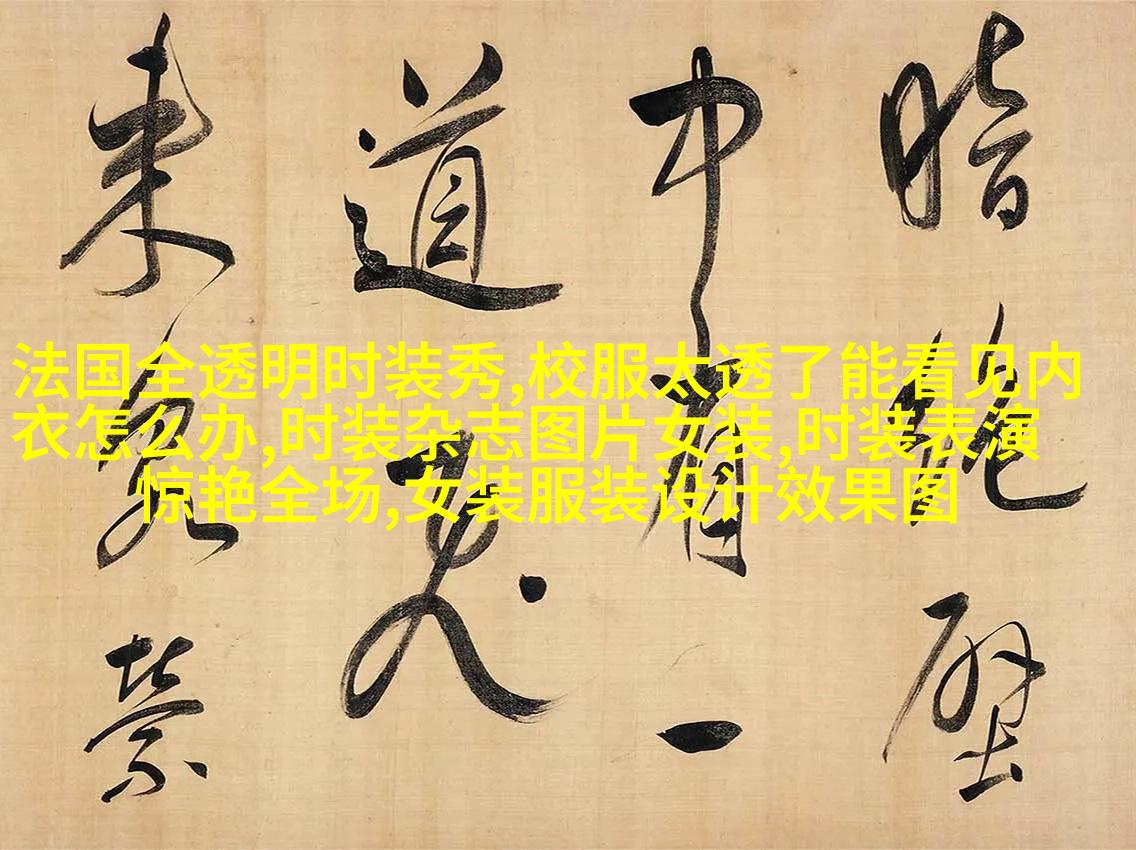 法国全透明时装秀,校服太透了能看见内
衣怎么办,时装杂志图片女装,时装表演
惊艳全场,女装服装设计效果图
暗絶壁
中有一
道
来